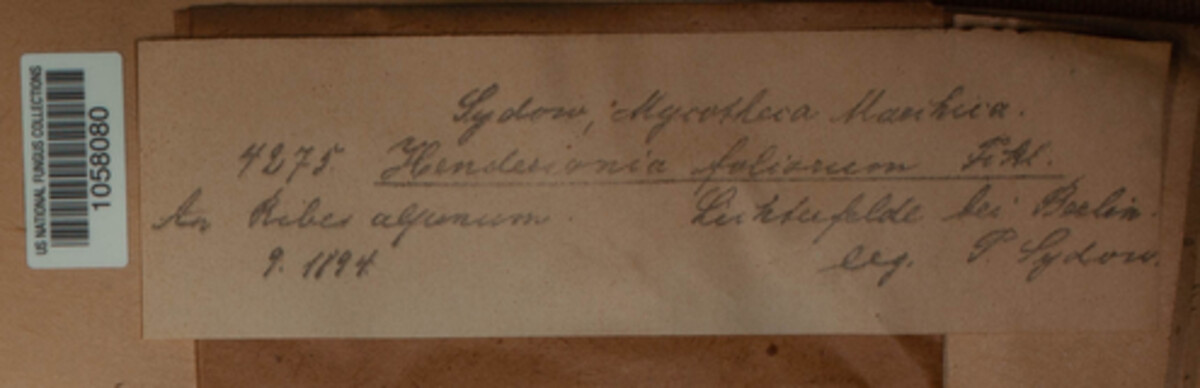 US NATIONAL FUNGUS COLLECTIONS
1058080
Sydow, Mycotheca Marchica.
4275. Hendersonia foliorum Fckl.
An Ribes alpinum. Lichterfelde bei Berlin.
9. 1894 leg. P Sydow.